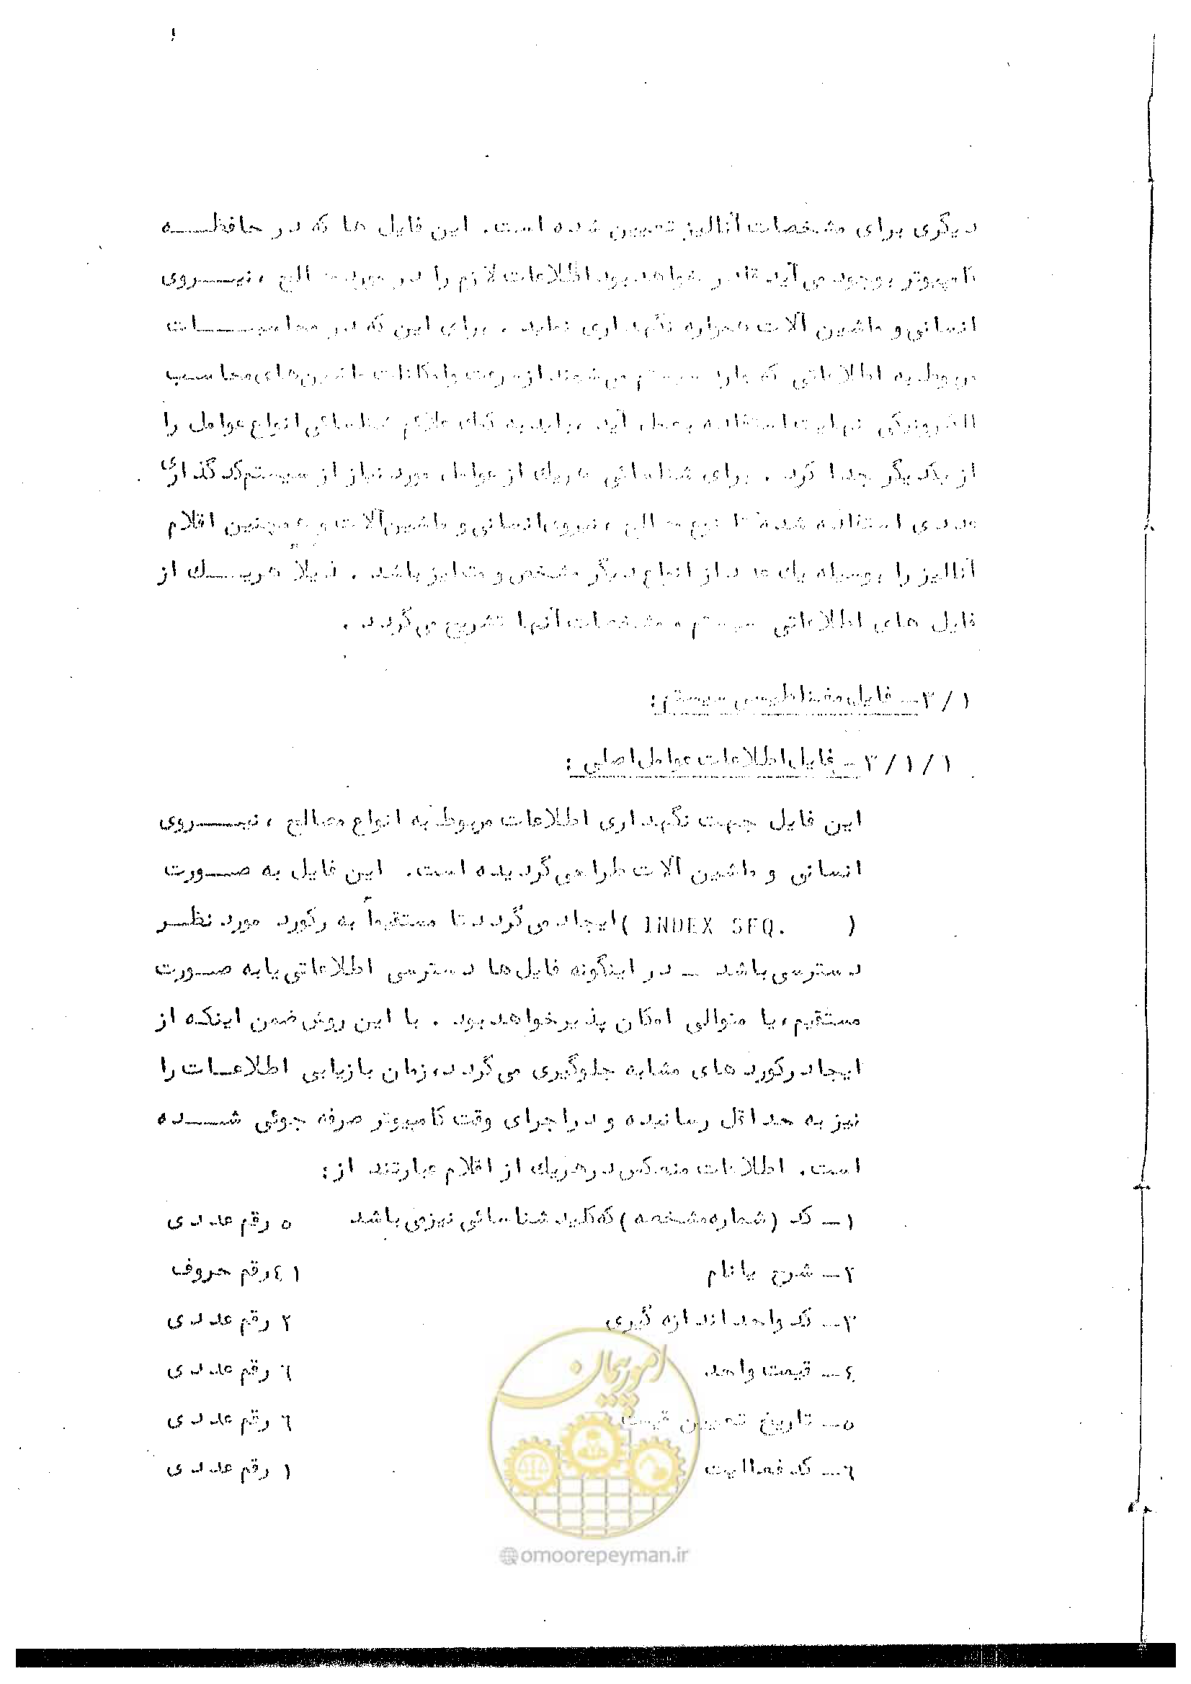 دیگری برای مشخصات آنالیز تعیین شده است. این فایل ها که در حافظه
کامپیوتر بوجود می‌آید قادر خواهد بود اطلاعات لازم را در مورد مصالح ، نیروی
انسانی و ماشین آلات همواره نگهداری نماید . برای این که در محاسبات
مربوط به اطلاعاتی که وارد سیستم می‌شوند از سرعت و امکانات ماشین‌های محاسب
الکترونیکی نهایت استفاده بعمل آید ، باید به کمک علائم شناسائی انواع عوامل را
از یکدیگر جدا کرد . برای شناسائی هریک از عوامل مورد نیاز از سیستم کد گذاری
عددی استفاده شده تا نوع مصالح ، نیروی انسانی و ماشین‌آلات و همچنین اقلام
آنالیز را بوسیله یک عدد از انواع دیگر مشخص و متمایز باشد . ذیلاً هریک از
فایل های اطلاعاتی سیستم و مشخصات آنها تشریح می‌گردد .
۳/۱ – فایل مغناطیسی سیستم :
۳/۱/۱ – فایل اطلاعات عوامل اصلی :
این فایل جهت نگهداری اطلاعات مربوط به انواع مصالح ، نیروی
انسانی و ماشین آلات طراحی گردیده است. این فایل به صورت
( INDEX SEQ. ) ایجاد می‌گردد تا مستقیماً به رکورد مورد نظر
دسترسی باشد – در اینگونه فایل‌ها دسترسی اطلاعاتی یا به صورت
مستقیم ، یا متوالی امکان پذیر خواهد بود . با این روش ضمن اینکه از
ایجاد رکورد های مشابه جلوگیری می‌گردد، زمان بازیابی اطلاعات را
نیز به حداقل رسانیده و در اجرای وقت کامپیوتر صرفه جوئی شده
است. اطلاعات منعکس در هریک از اقلام عبارتند از :
۱– کد (شماره مشخصه) که کلید شناسائی نیز می باشد ۵ رقم عددی
۲– شرح یا نام ۱٤ رقم حروف
۳– کد واحد اندازه گیری ۲ رقم عددی
٤– قیمت واحد ٦ رقم عددی
۵– تاریخ تعیین قیمت ٦ رقم عددی
٦– کد فعالیت ۱ رقم عددی
امور پیمان
@omoorepeyman.ir